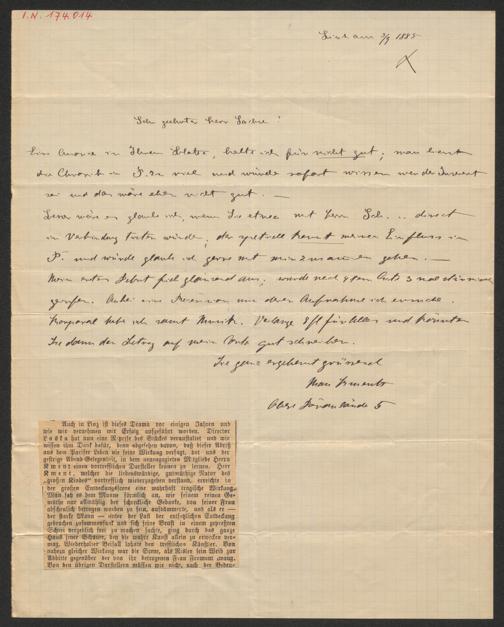 I.N. 174.014
Linz am 3/9 1885
Sehr geehrter Herr
Eine Annonce in Ihrem halte ich für nicht gut; man kennt
die Chronik in P. zu viel und würde sofort wissen wer der Inserent
sei und das wäre eben nicht gut. —
wäre es glaube ich, wenn Sie etwas mit Herrn Sch... direct
in Verbindung treten würden, der kennt meinen Einfluss in
P. und würde glaube ich gerne mit mir zusammen gehen. —
Mein erstes Debut fiel glänzend aus; wurde nach Akt 3 mal
gerufen. Anbei eine Recension um deren Aufnahme ich ersuche.
habe ich samt Musik. Verlange 8 fl für und könnten
Sie dann den Betrag auf mein Conto gut schreiben.
Sie ganz ergebenst grüssend
Obere 5
Auch in Linz ist dieses Drama vor einigen Jahren und
wie wir vernehmen mit Erfolg aufgeführt worden. Director
Laska hat nun eine Reprise des Stückes veranstaltet und wir
wissen ihm Dank dafür, denn abgesehen davon, daß dieses Abbild
aus dem Pariser Leben nie seine Wirkung verfehlt, bot uns der
gestrige Abend Gelegenheit, in dem neuengagirten Mitgliede Herrn
Kment einen vortrefflichen Darsteller kennen zu lernen. Herr
Kment, welcher die liebenswürdige, gutmüthige Natur des
„großen Kindes" vortrefflich wiederzugeben verstand, erreichte in
der großen Entdeckungsscene eine wahrhaft tragische Wirkung.
Man sah es dem Manne förmlich an, wie seinem reinen Ge-
müthe nur allmählig der schreckliche Gedanke, von seiner Frau
abscheulich betrogen worden zu sein, aufdämmerte, und als er —
der starke Mann — unter der Last der entsetzlichen Entdeckung
gebrochen zusammensinkt und sich seine Brust in einem gepreßten
Schrei vergeblich frei zu machen suchte, ging durch das ganze
Haus jener Schauer, den die wahre Kunst allein zu erwecken ver-
mag. Wiederholter Beifall lohnte den trefflichen Künstler. Von
nahezu gleicher Wirkung war die Scene, als Risler sein Weib zur
Abbitte gegenüber der von ihr betrogenen Frau Fromont zwang.
Von den übrigen Darstellern müssen wir nicht, nach der Bedeu-